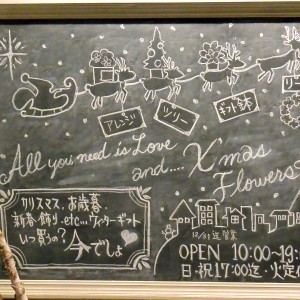 アレンジ
ツリー
ギフト鉢
リー
All you need is Love
and.... X'mas
Flowers
クリスマス、お歳暮
新春飾り、etc... ウィンターギフト
いつ買うの?
今でしょ
OPEN 10:00~19:
日・祝17:00迄・火定休